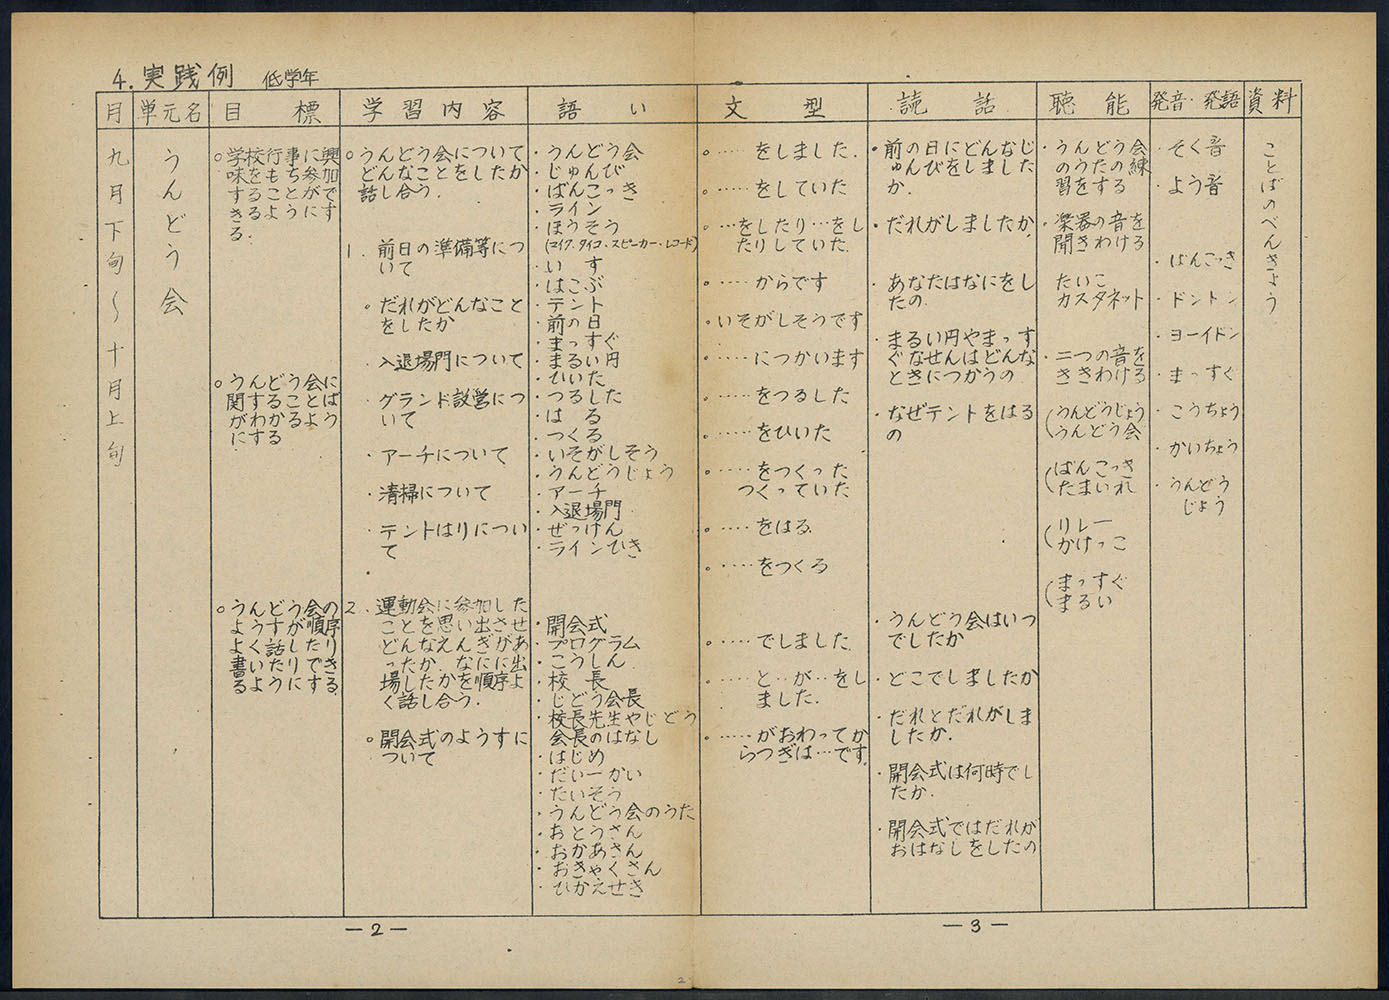 4. 実践例　低学年
月
単元名
目　標
学習内容
語　い
文　型
読　話
聴　能
発音・発語
資料
九月下旬〜十月上旬
うんどう会
○学校行事に興
味をもち参加
するこどがです
きるように
る.
○うんどう会に
関するこばとう
がわかるよ
にする
○うんどう会の
ようすが順序
よく話したり
書いたりでき
るようにする
○うんどう会について
どんなことをしたか
話し合う.
1. 前日の準備等につ
いて
・だれがどんなこと
をしたか
・入退場門について
・グランド設営につ
いて
・アーチについて
・清掃について
・テントはりについ
て
2. 運動会に参加した
ことを思い出させ
どんな思えんぎがあ
ったか. なにに出
場したかを順序よ
く話し合う.
○開会式のようすに
ついて
・うんどう会
・じゅんび
・ばんこっき
・ライン
・ほうそう
(マイク・タイコ・スピーカー・レコード)
・い　す
・はこぶ
・テント
・前の日
・まっすぐ
・まるい円
・ひいた
・つるした
・は　る
・つくる
・いそがしそう
・うんどうじょう
・アーチ
・入退場門
・ぜっけん
・ラインひき
・開会式
・プログラム
・こうしん
・校　長
・じどう会長
・校長先生やじどう
会長のはなし
・はじめ
・だい一かい
・たいそう
・うんどう会のうた
・おとうさん
・おかあさん
・おきゃくさん
・ひかえせき
○……をしました.
○……をしていた
○…をしたり…をし
たりしていた.
○……からです
○いそがしそうです
○……につかいます
○……をつるした
○……をひいた
○……をつくった
つくっていた
○……をはる
○……をつくる
○……でしました
○……と‥が‥をし
ました.
○……がおわってか
らつぎは…です.
・前の日にどんなじ
ゅんびをしました
か.
・だれがしましたか.
・あなたはなにをし
たの.
・まるい円やまっす
ぐなせんはどんな
ときにつかうの
・なぜテントをはる
の
・うんどう会はいつ
でしたか
・どこでしましたか
・だれとだれがしま
したか.
・開会式は何時でし
たか.
・開会式ではだれが
おはなしをしたの
・うんどう会
のうたの練
習をする
・楽器の音を
聞きわける
たいこ
カスタネット
・二つの音を
ききわける
(うんどうじょう
うんどう会
(ばんこっき
たまいれ
(リレー
かけっこ
(まっすぐ
まるい
・そく音
・よう音
・ばんこっき
・ドントン
・ヨーイドン
・まっすぐ
・こうちょう
・かいちょう
・うんどう
じょう
ことばのべんきょう
—2—
—3—